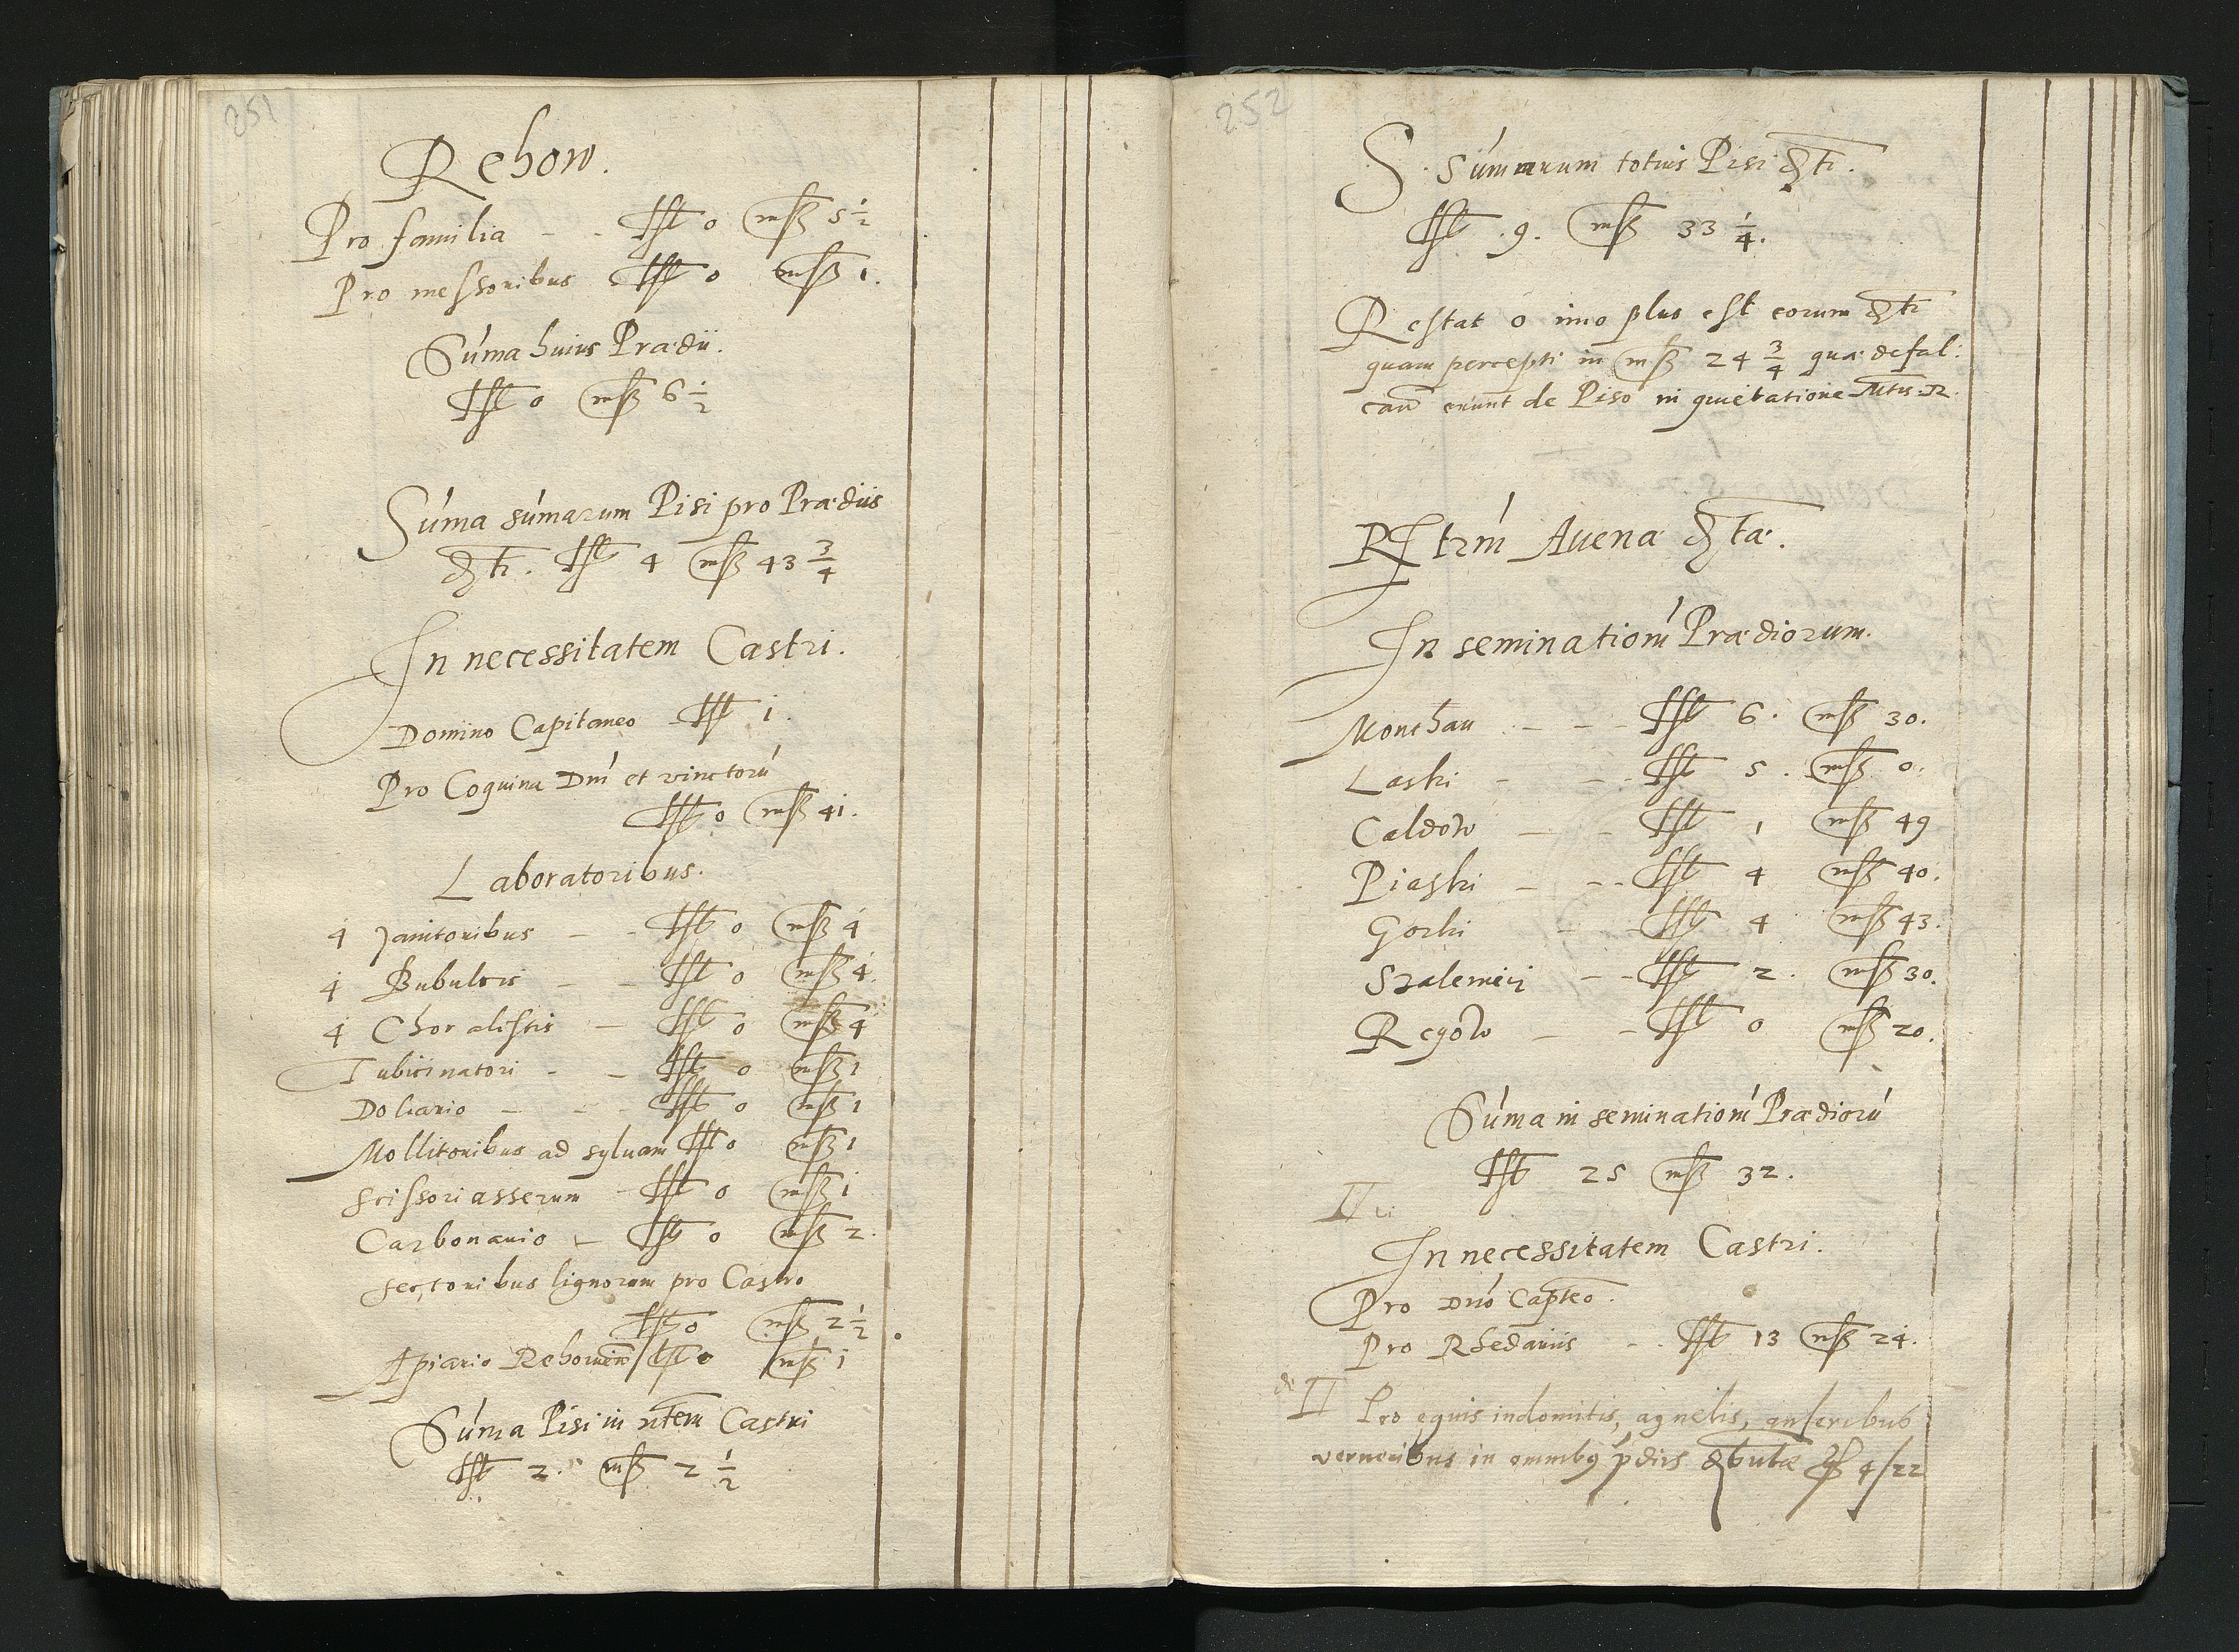 251
Rehow.
Pro familia - - Lst 0 msz 5 1/2
Pro messoribus Lst 0 msz 1.
Suma huius Prædii.
Lst 0 msz 6 1/2
Suma sumarum Pisi pro Prædiis
Lst 4 msz 43 3/4
In necessitatem Castri.
Domino Capitaneo Lst 1.
Pro Coquina Dni et vinctorú
Lst 0 msz 41.
Laboratoribus.
4 Janitoribus - - Lst 0 msz 4
4 Bubulcis - - Lst 0 msz 4.
4 Choralistis - Lst 0 msz 4
Tubicinatori - - Lst 0 msz 1
Doliario - - - Lst 0 msz 1
Mollitoribus ad syluam Lst 0 msz 1
Scissori asserum - Lst 0 msz 1
Carbonario - Lst 0 msz 2.
Sectoribus lignorum pro Castro
Lst 0 msz 2 1/2
Apiario Lst 0 msz 1
Suma Pisi in ntem Castri
Lst 2. msz 2 1/2
252
S. Sumarum totius Pisi
Lst .9. msz 33 1/4.
Restat 0 imo plus est eorum
quam percepti in msz 24 3/4 quæ defal:
erunt de Piso in quietatione
Avenæ
In seminationem Prædiorum.
Monchau - - - Lst 6. msz 30.
Laski - - - Lst 5. msz 0.
Caldow - - Lst 1 msz 49
Piaski - - - Lst 4 msz 40.
Gorki - - Lst 4 msz 43.
Szalemeij - - Lst 2. msz 30.
Regow - - Lst 0 msz 20.
Suma in seminationem Prædiorú
Lst 25 msz 32.
In necessitatem Castri.
Pro Dno Capteo.
Pro Rhedariis - - Lst 13 msz 24.
Pro equis indomitis, agnelis, anseribus
in omnibus pdiis 4/22